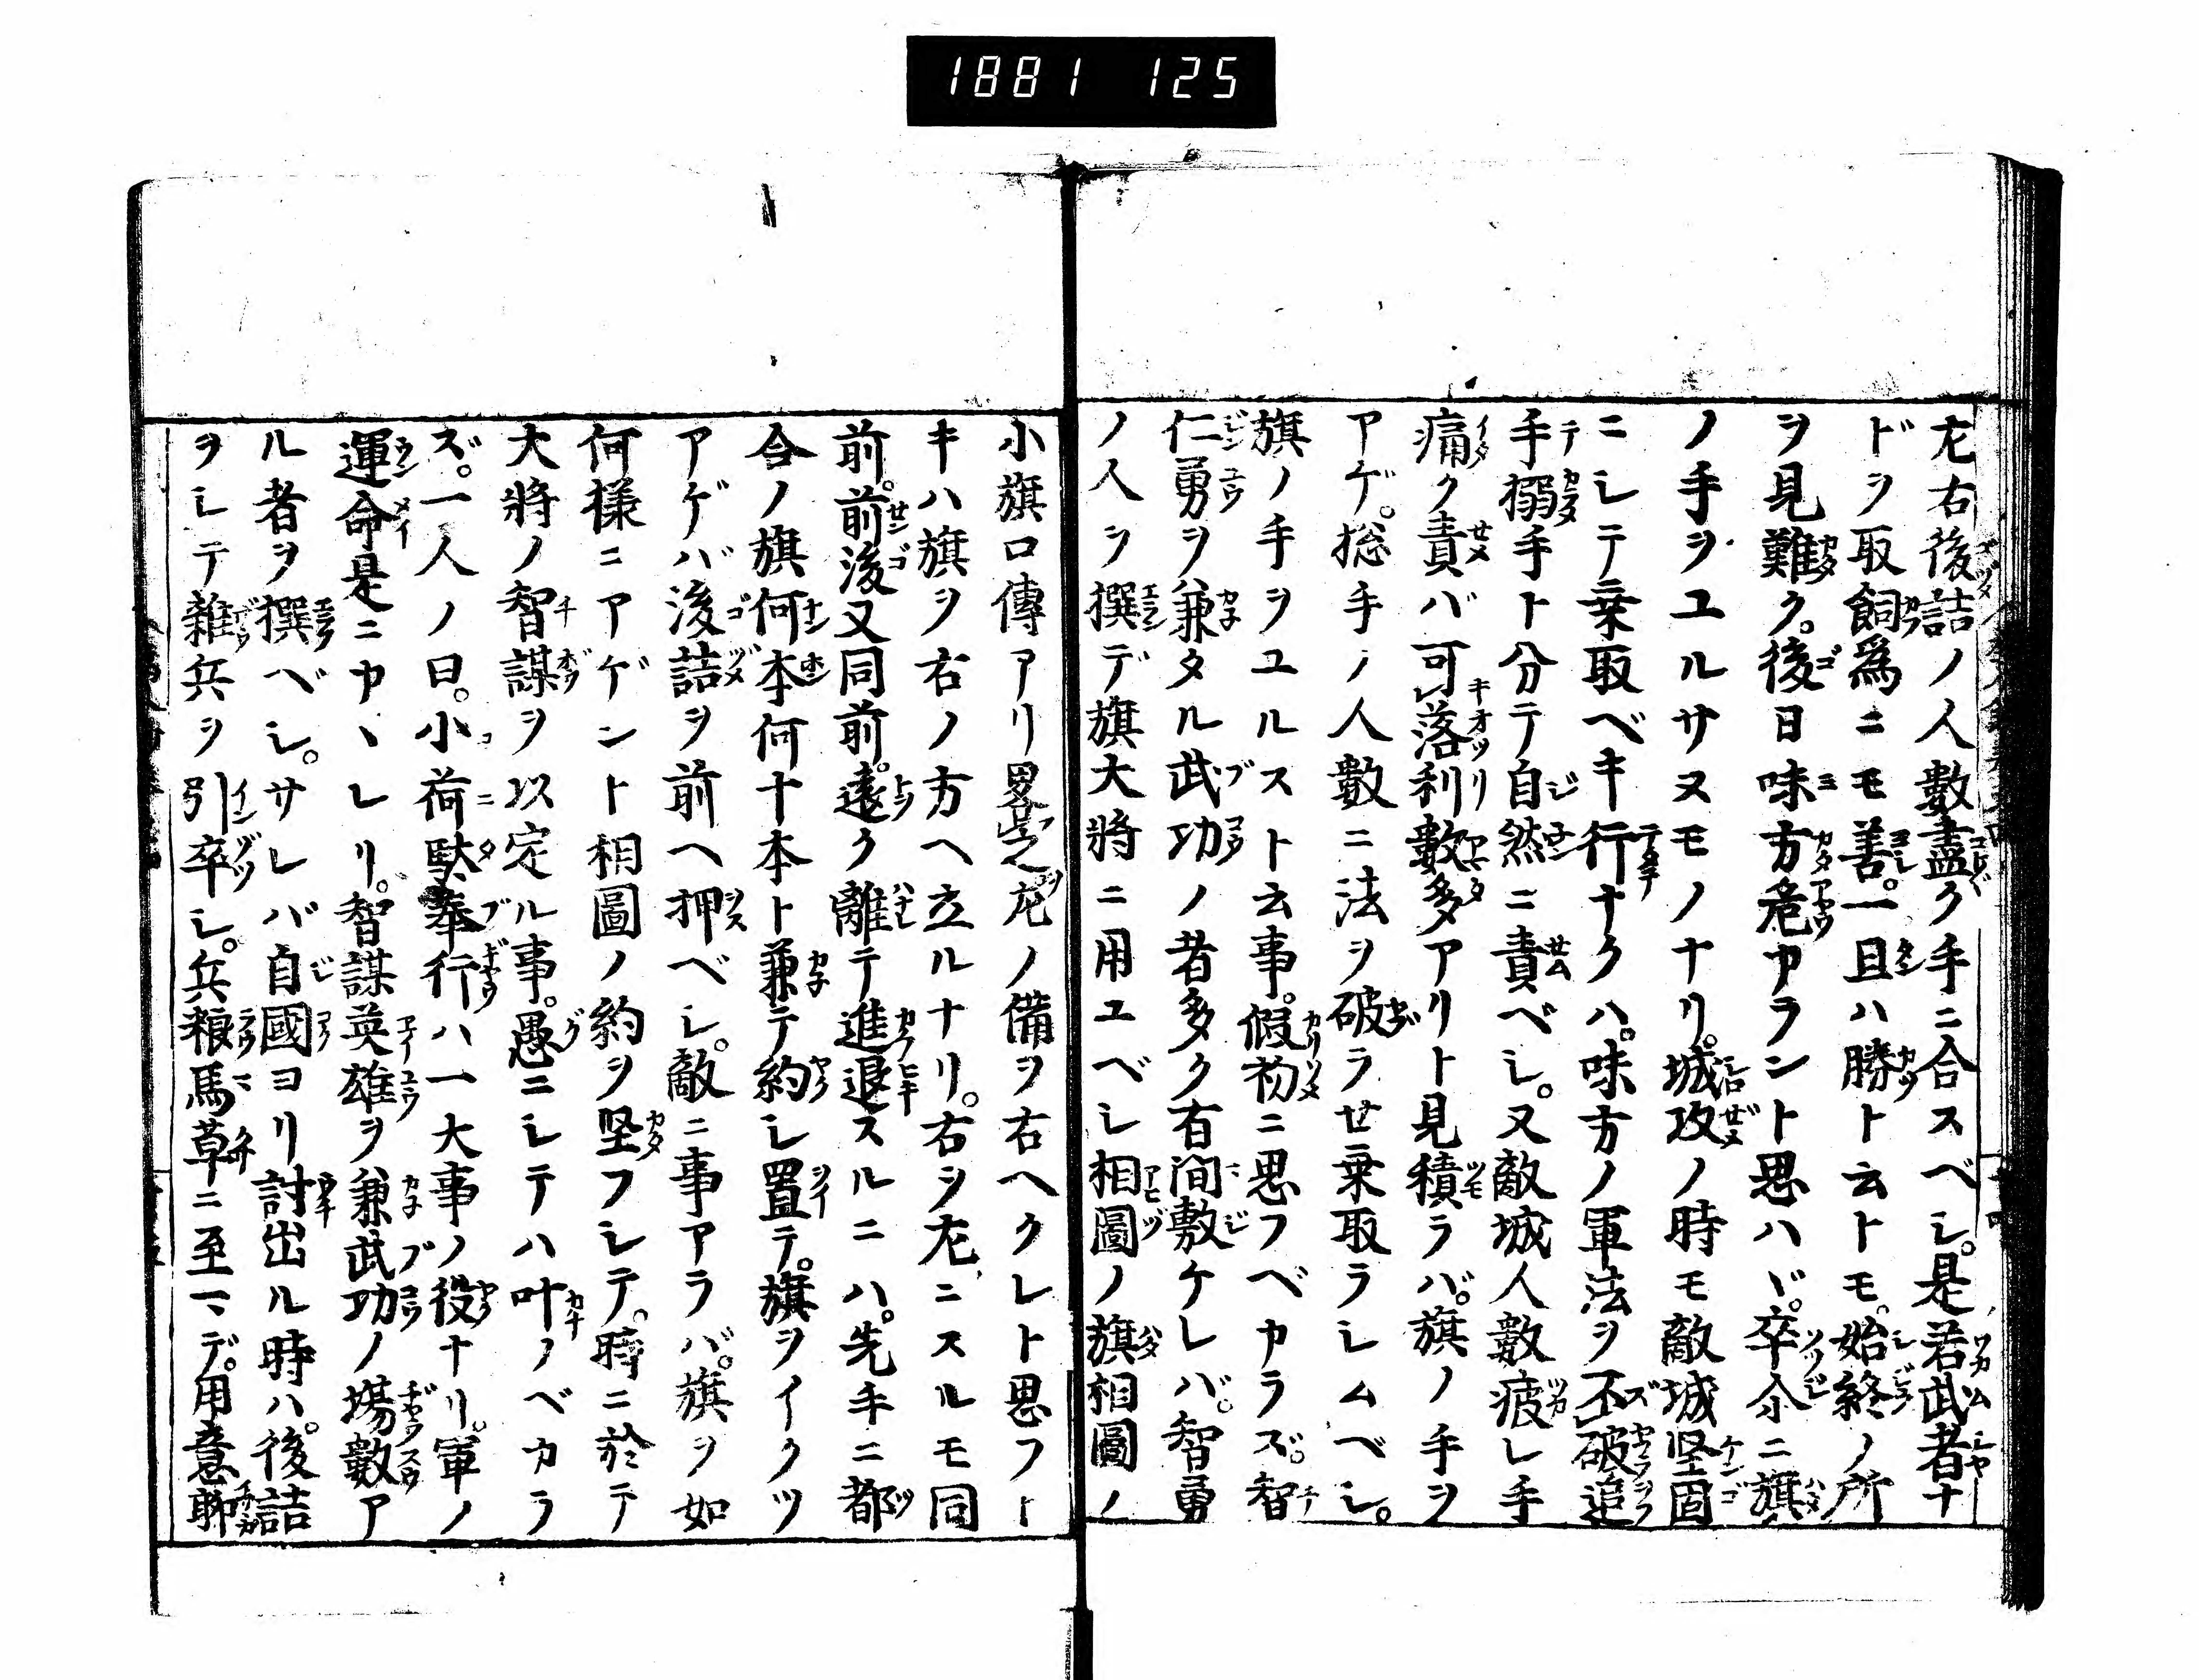 1881 125
左右後詰ノ人數盡ク手ニ合スベシ。是若武者ナ
ドヲ取飼爲ニモ善。一且ハ勝ト云トモ。始終ノ所
ヲ見難ク。後日味方危カラント思ハヾ。卒尓ニ旗
ノ手ヲユルサヌモノナリ。城攻ノ時モ敵城堅固
ニシテ乗取ベキ行ナクハ。味方ノ軍法ヲ不破追
手搦手ト分テ自然ニ責ベシ。又敵城人數疲レ手
痛ク責バ可落利數多アリト見積ラバ。旗ノ手ヲ
アゲ。総手ノ人數ニ法ヲ破ラセ乗取ラシムベシ。
旗ノ手ヲユルスト云事。假初ニ思フベカラズ。智
仁勇ヲ兼タル武功ノ者多ク有間敷ケレバ。智勇
ノ人ヲ撰デ旗大將ニ用ユベシ相圖ノ旗相圖ノ
小旗口傳アリ畧之左ノ備ヲ右ヘクレト思フト
キハ旗ヲ右ノ方ヘ立ルナリ。右ヲ左ニスルモ同
前。前後又同前。遠ク離テ進退スルニハ。先手ニ都
合ノ旗何本何十本ト兼テ約シ置テ。旗ヲイクツ
アゲバ後詰ヲ前ヘ押ベシ。敵ニ事アラバ。旗ヲ如
何様ニアゲント相圖ノ約ヲ堅フシテ。時ニ於テ
大將ノ智謀ヲ以定ル事。愚ニシテハ叶ノベカラ
ズ。一人ノ曰。小荷駄奉行ハ一大事ノ役ナリ。軍ノ
運命是ニカヽレリ。智謀英雄ヲ兼武功ノ場數ア
ル者ヲ撰ベシ。サレバ自國ヨリ討出ル時ハ。後詰
ヲシテ雜兵ヲ引卒シ。兵粮馬草ニ至マデ。用意聊